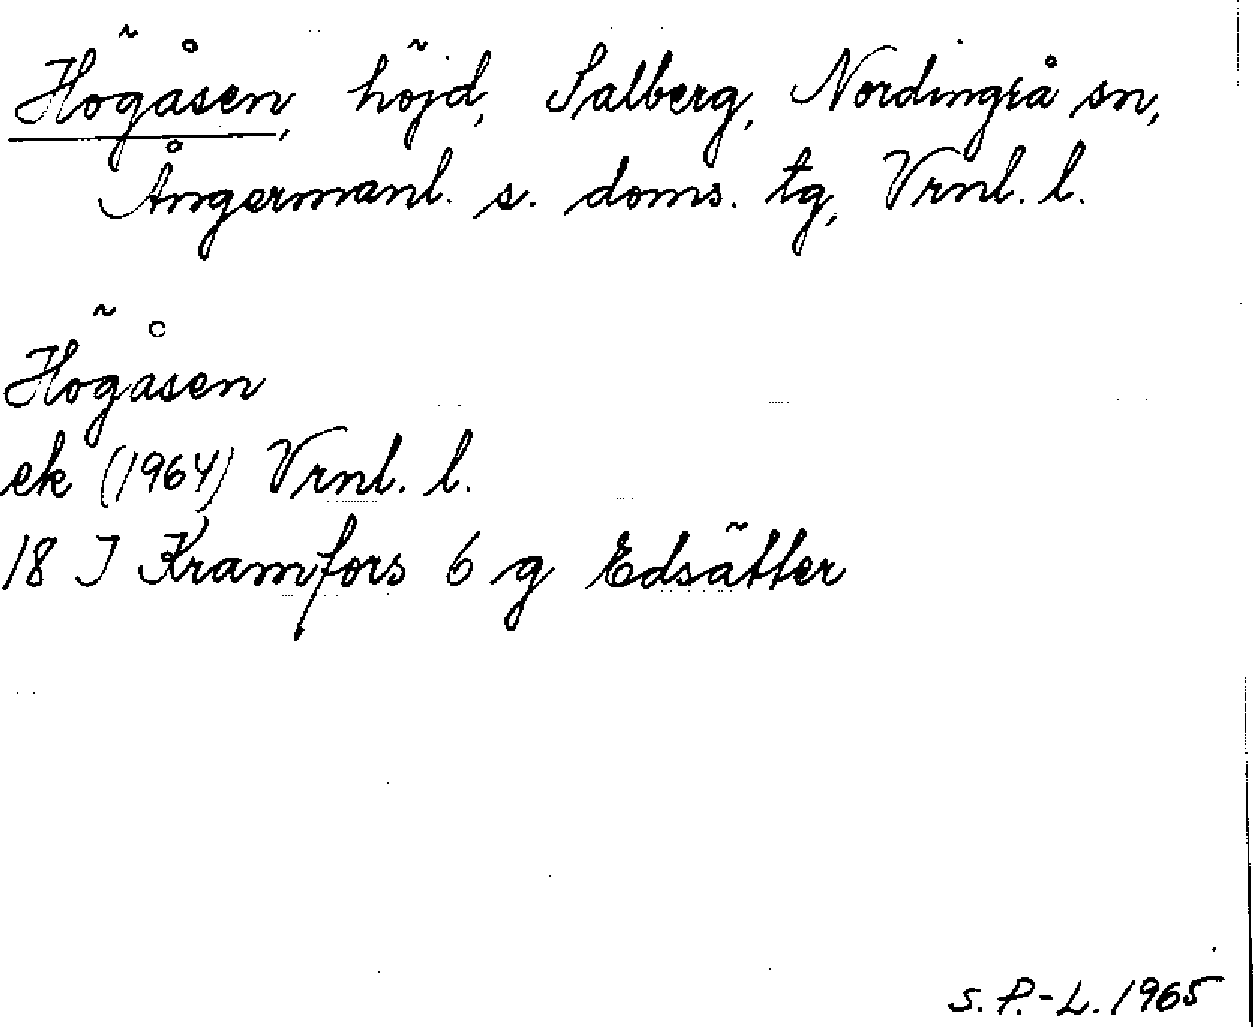 Högåsen, höjd, Salberg, Nordingrå sn,
Ångermanl. s. doms. tg, Vrnl. l.
Högåsen
ek (1964) Vrnl. l.
18 I Kramfors 6 g Edsätter
S.P.-L. 1965